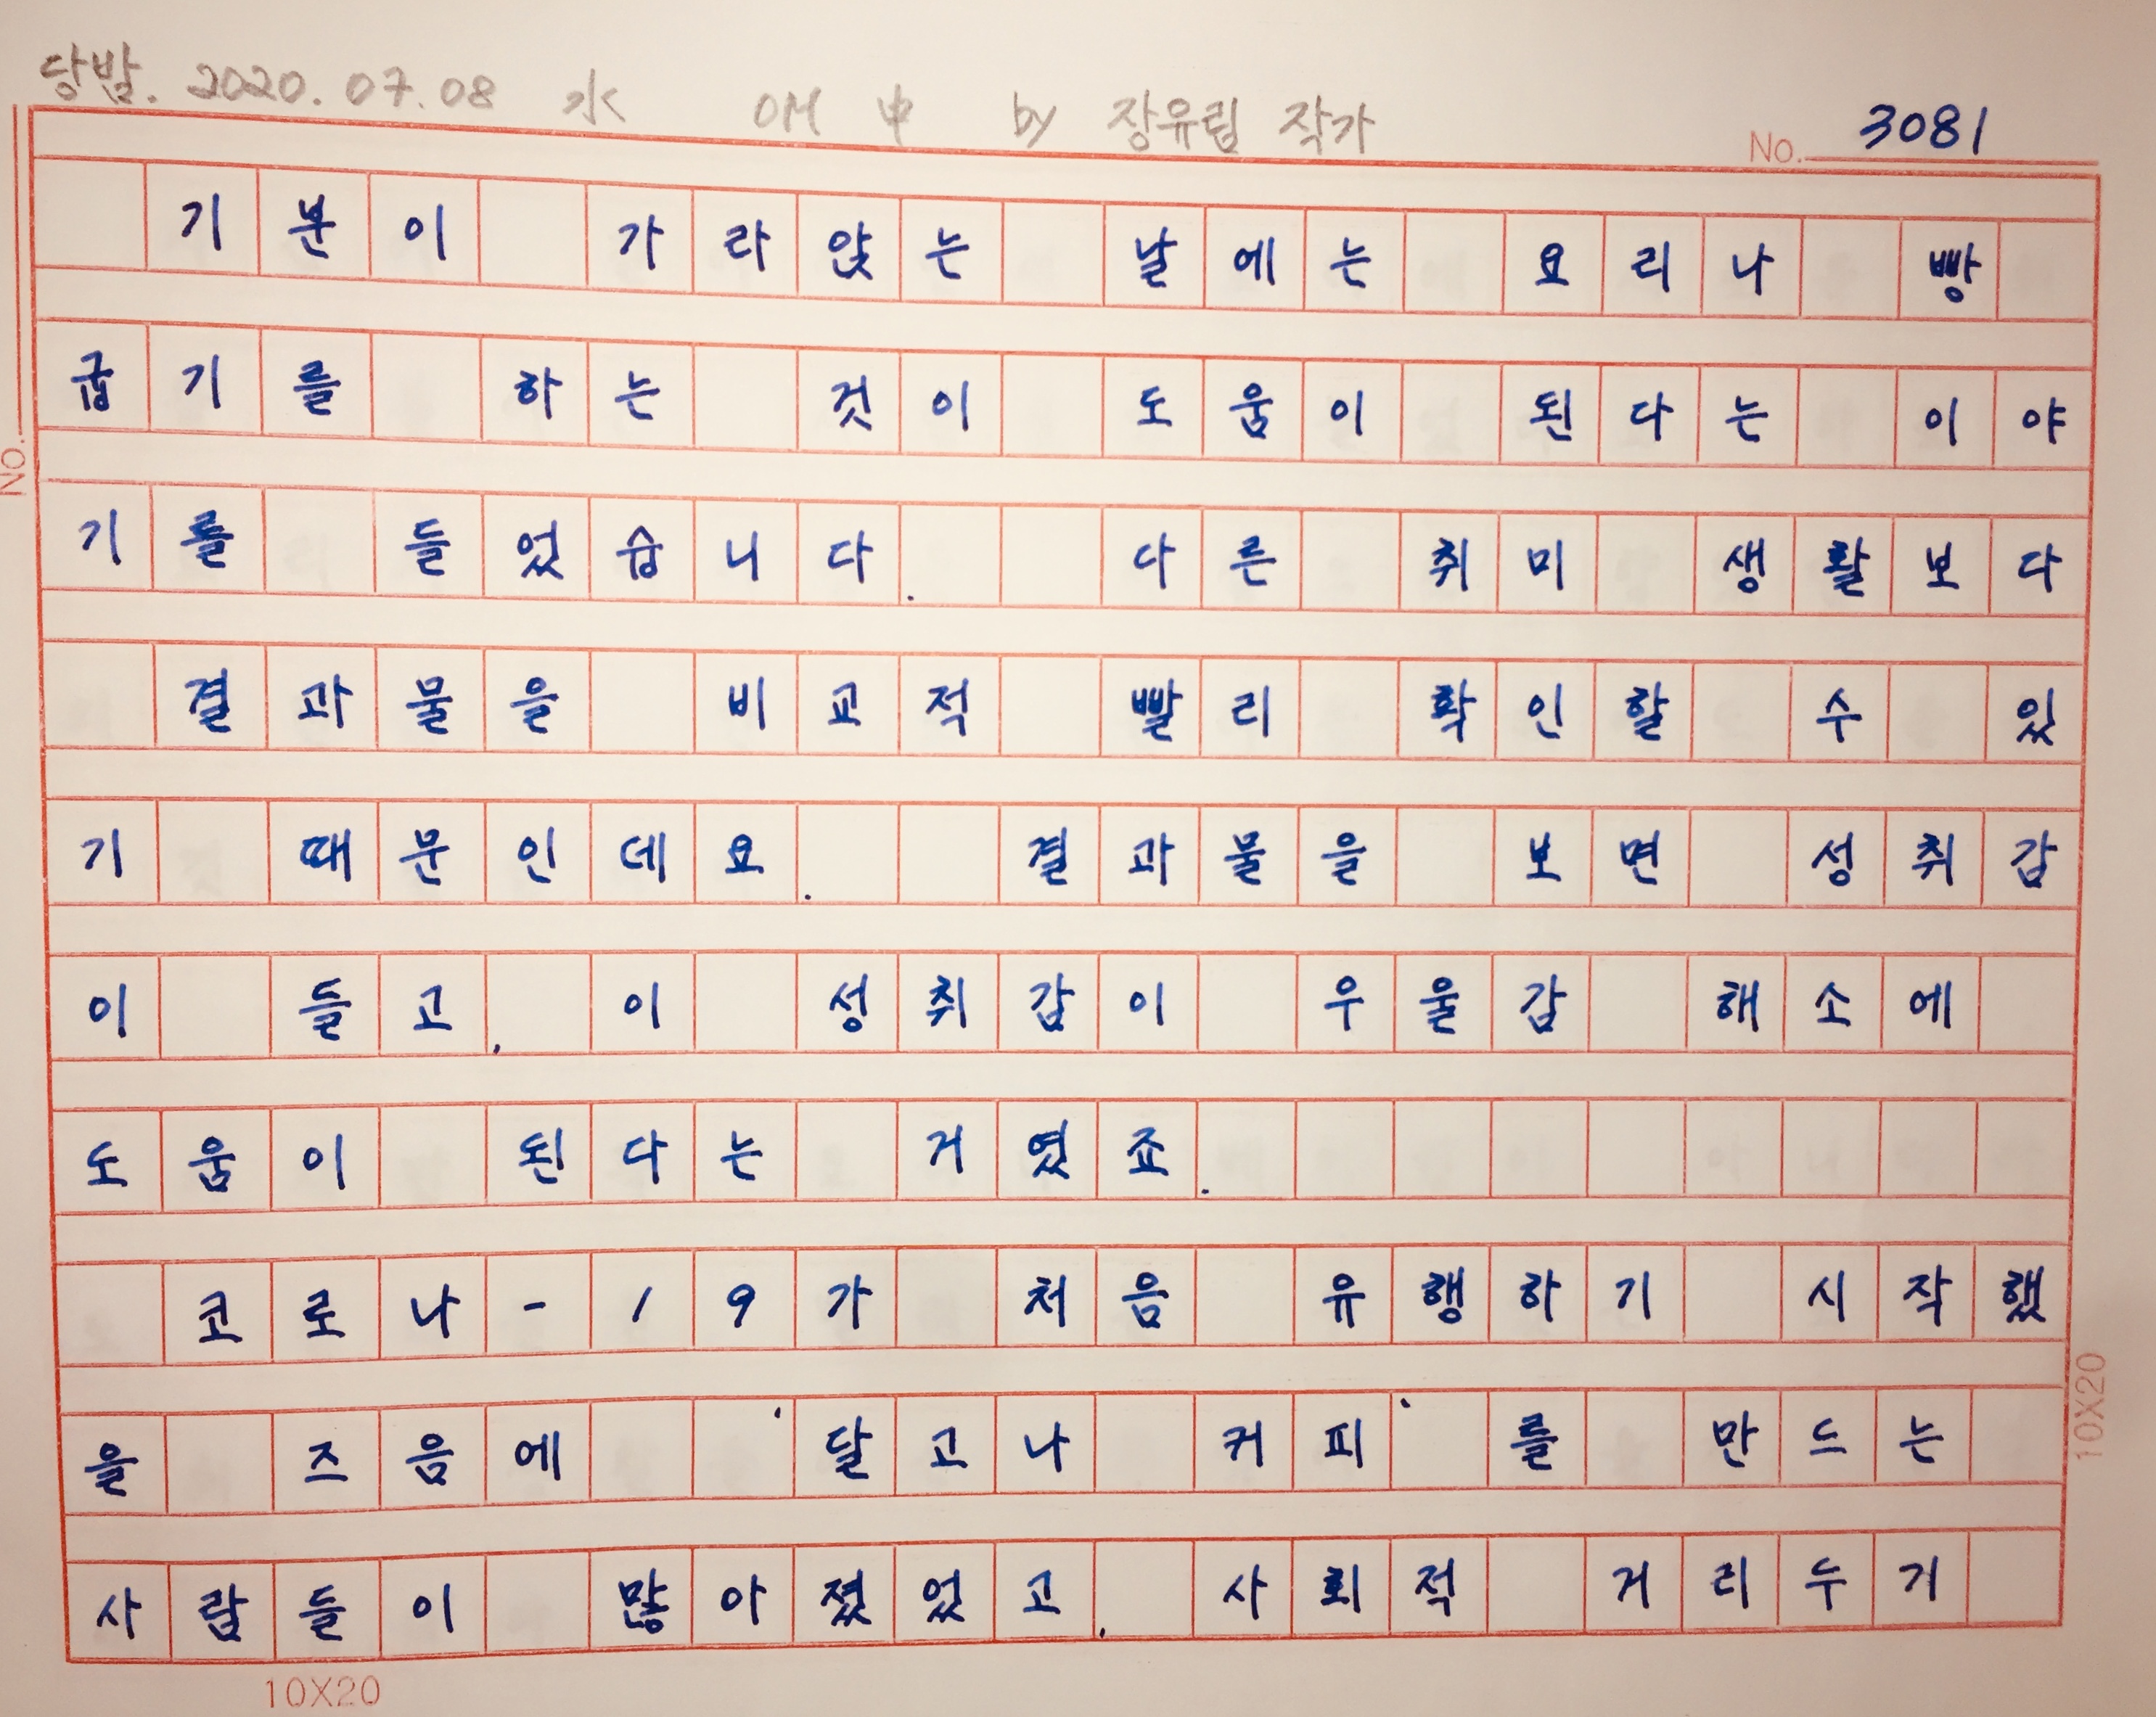 당밤. 2020. 07. 08 水 OM 中 by 장유림 작가
No. 3081
기분이 가라앉는 날에는 요리나 빵
굽기를 하는 것이 도움이 된다는 이야
기를 들었습니다. 다른 취미 생활보다
결과물을 비교적 빨리 확인할 수 있
기 때문인데요. 결과물을 보면 성취감
이 들고, 이 성취감이 우울감 해소에
도움이 된다는 거였죠.
코로나-19가 처음 유행하기 시작했
을 즈음에 '달고나 커피'를 만드는
사람들이 많아졌었고, 사회적 거리두기
No.
10X20
10X20